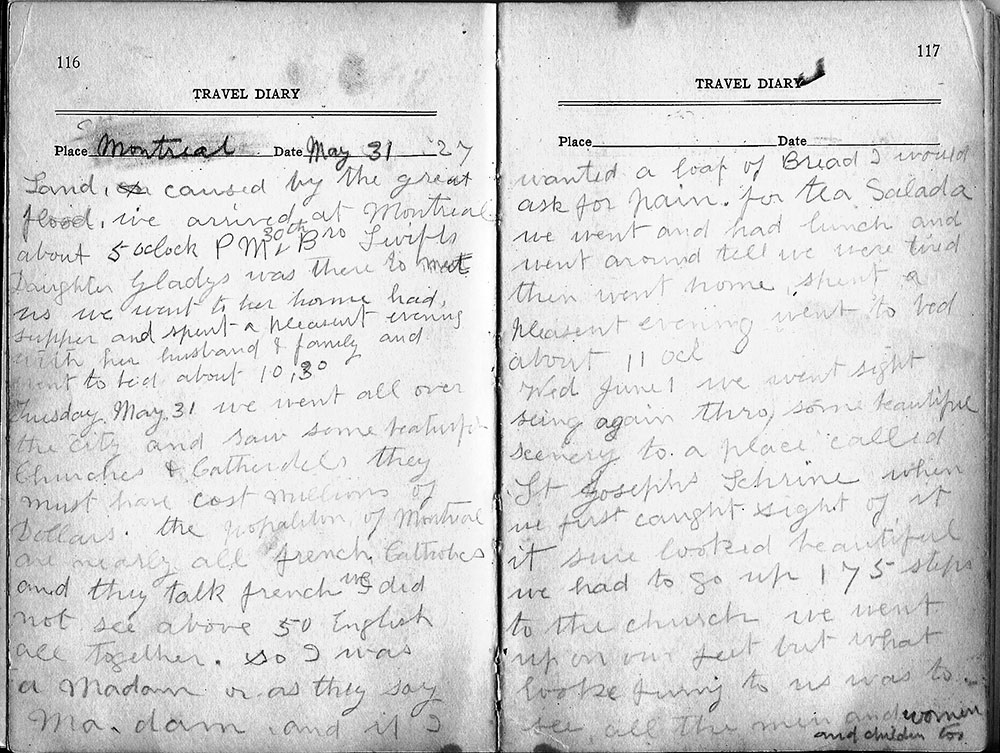 116
TRAVEL DIARY
Place Montreal Date May 31 27
Land, caused by the great
flood, we arrived at Montreal
about 5 oclock PM 30th Bro Swifts
Daughter Gladys was there to meet
us we went to her home had,
supper and spent a pleasent evening
with her husband & family and
went to bed about 10,30
Tuesday May 31 we went all over
the City and saw some
Churches & Catherdels they
must have cost millions of
Dollars. the of Montreal
are nearly all french Catholics
and they talk french we did
not see above 50 English
all together. so I was
a Madam or as they say
Ma. dam. and if I
117
TRAVEL DIARY
Place Date
wanted a loaf of Bread I would
ask for pain. for tea Salada
we went and had lunch and
went around tell we were tired
then went home, spent a
pleasent evening went to bed
about 11 ocl
Wed June 1 we went sight
seing again thro, some beautiful
scenery to a place called
St Josephs Schrine when
we first caught sight of it
it sure looked beautiful
we had to go up 175 steps
to the church we went
up on our feet but what
looke funny to us was to
see all the men and women
and children too